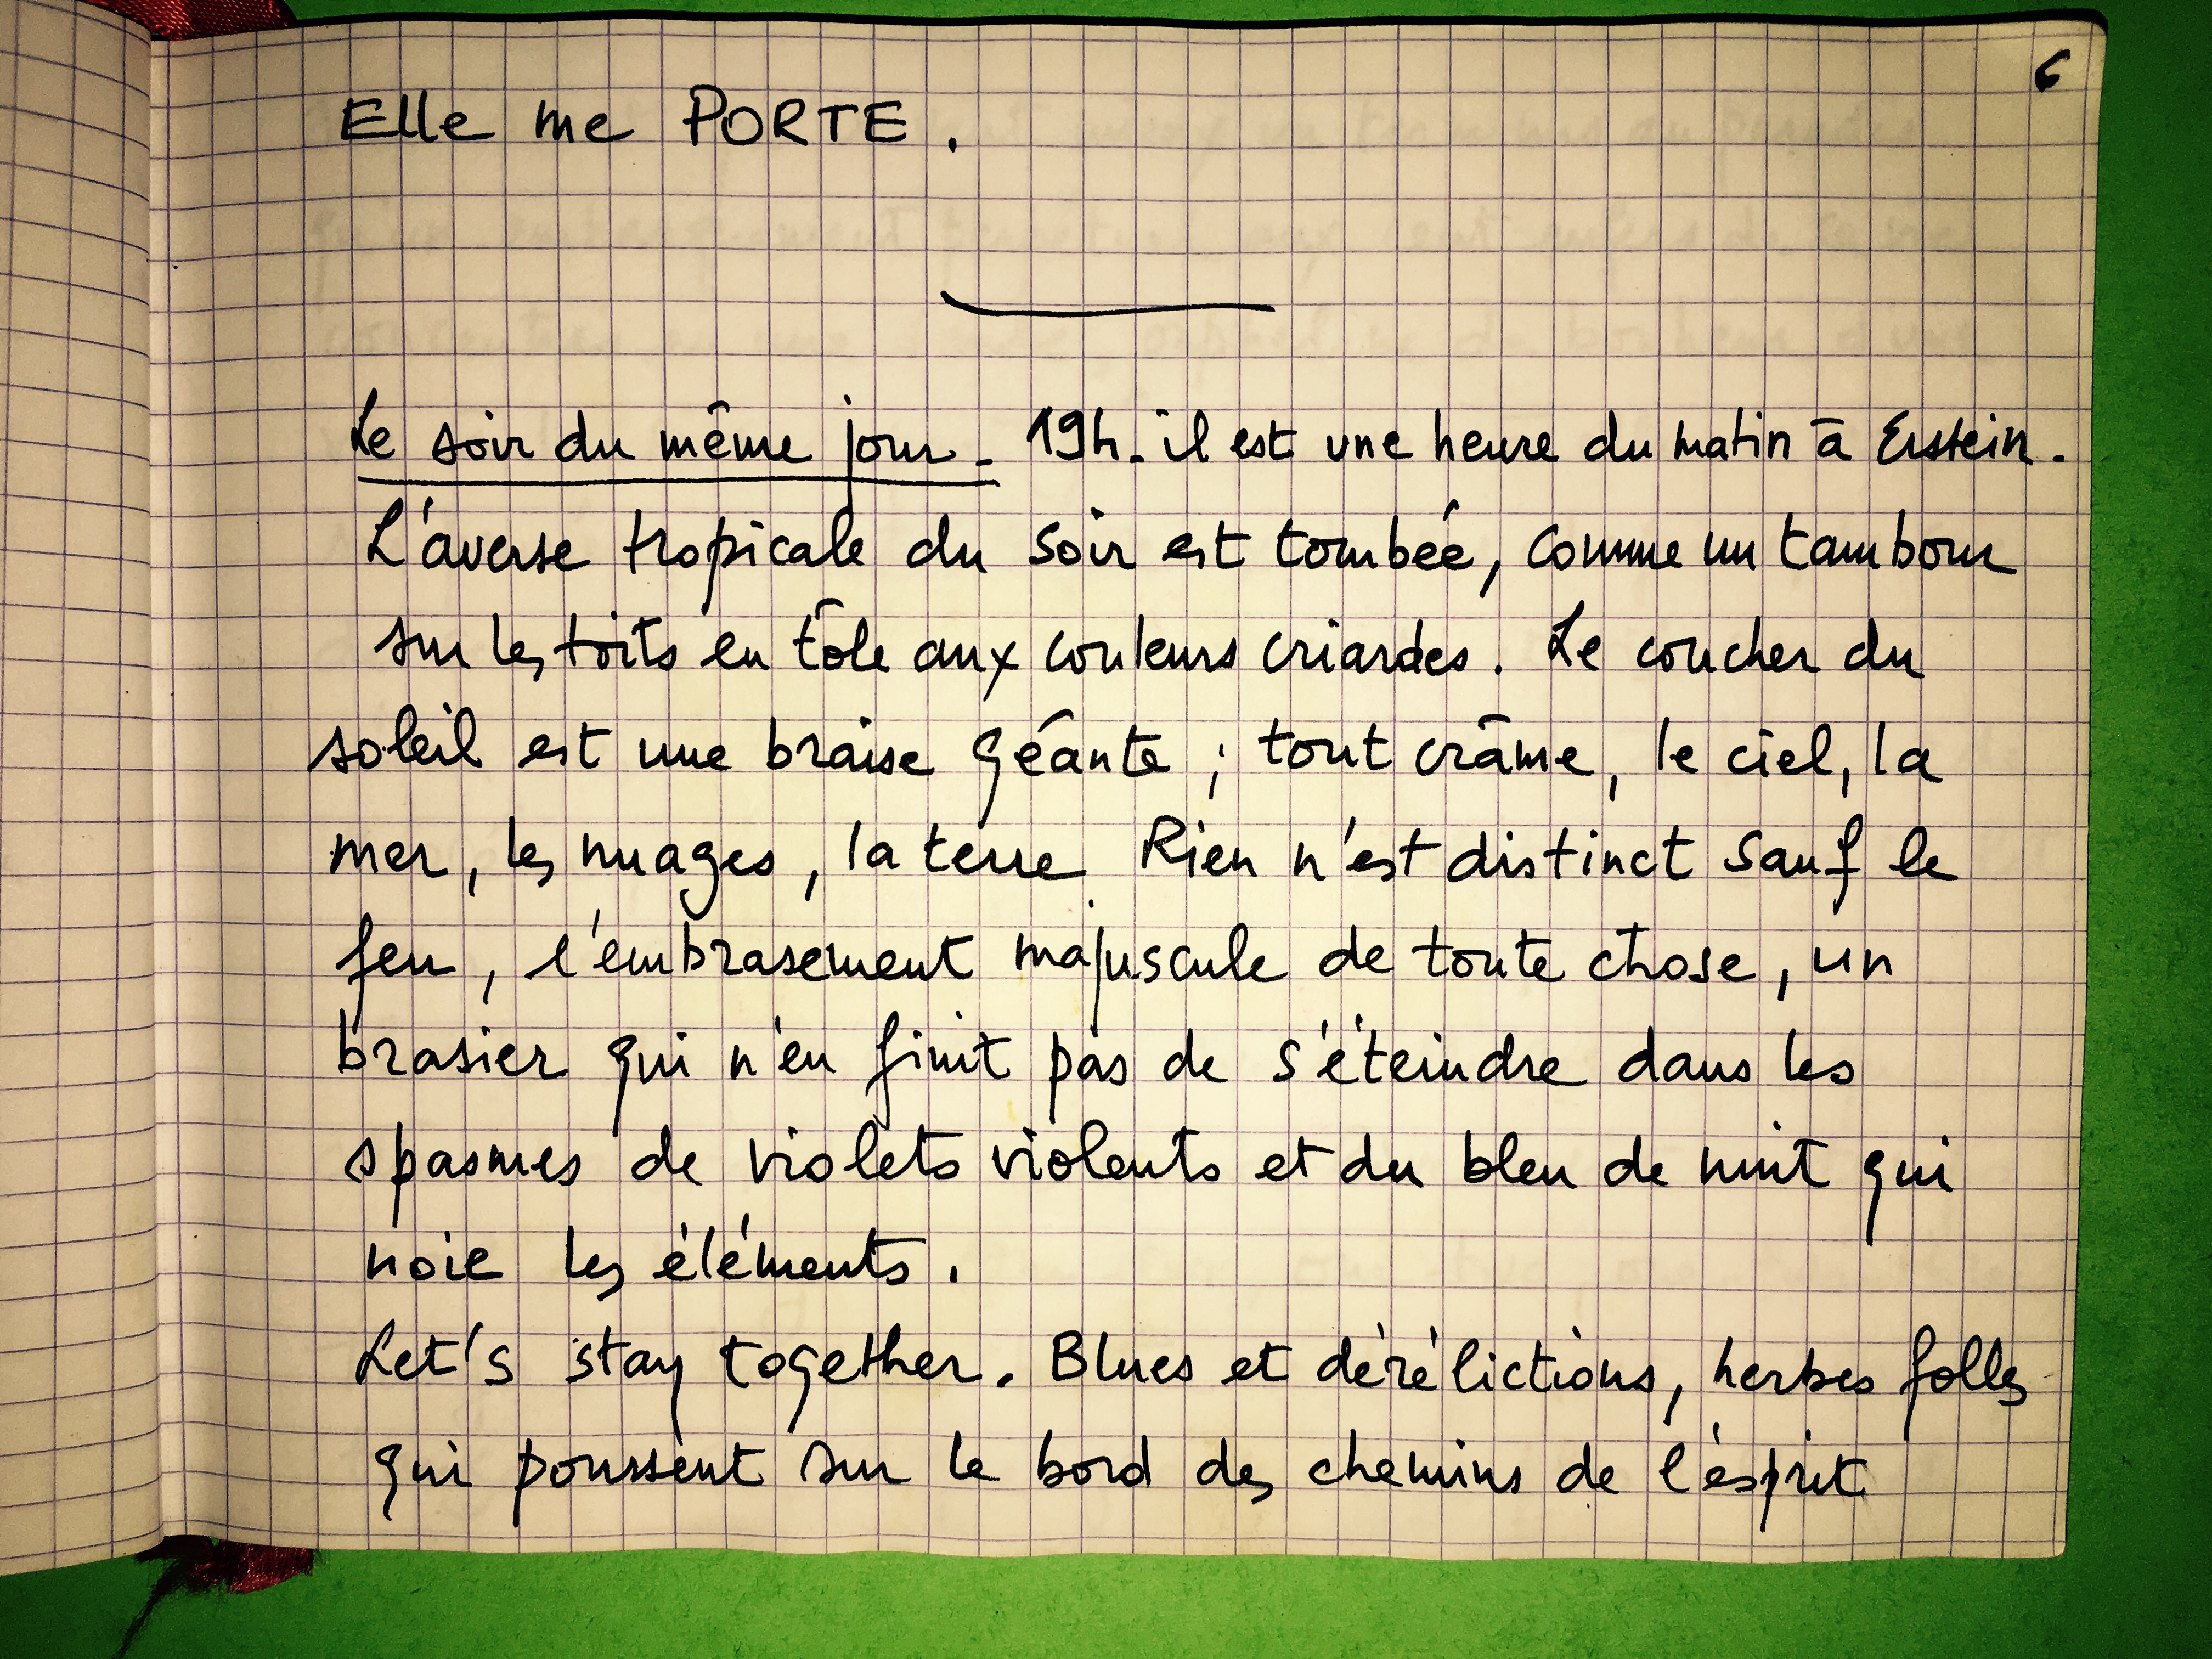 6
Elle me PORTE.
Le soir du même jour - 19h. il est une heure du matin à Erstein.
L'averse tropicale du soir est tombée, comme un tambour
sur les toits en tôle aux couleurs criardes. Le coucher du
soleil est une braise géante ; tout crâme, le ciel, la
mer, les nuages, la terre Rien n'est distinct sauf le
feu, l'embrasement majuscule de toute chose, un
brasier qui n'en finit pas de s'éteindre dans les
spasmes de violets violents et du bleu de nuit qui
noie les éléments.
Let's stay together. Blues et dérélictions, herbes folles
qui poussent sur le bord des chemins de l'esprit